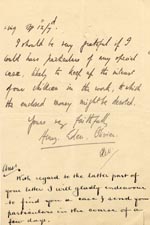 I should be very grateful if I
could have particulars of any special
case, likely to keep up the interest
of our children in the work, to which
the enclosed money might be devoted.
Yours very faithfully,
Ans:
With regard to the latter part of
your letter I will gladly endeavour
to find you a case & send you
particulars in the course of a
few days.